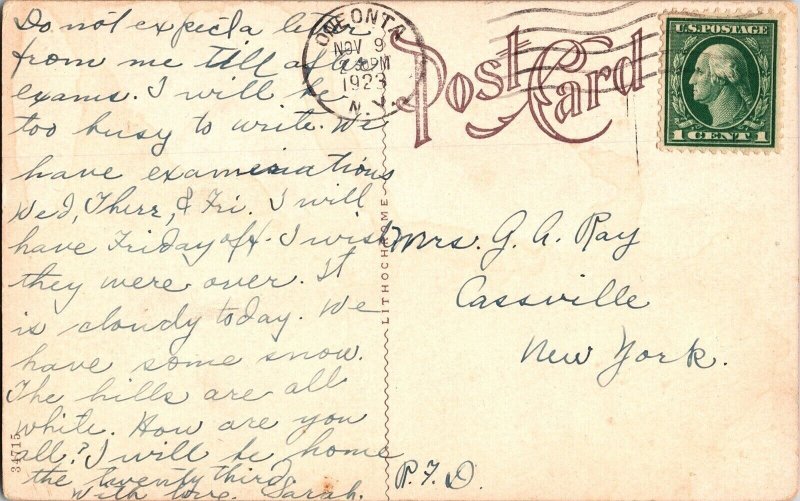 Do not expect a letter
from me till after
exams. I will be
too busy to write. We
have examinations
Wed, Thur, & Fri. I will
have Friday off. I wish
they were over. It
is cloudy today. We
have some snow.
The hills are all
white. How are you
all? I will be home
the twenty third.
With love. Sarah.
34715
ONEONTA
NOV 9
PM
1923
N.Y.
Post Card
U.S. POSTAGE
1 CENT 1
LITHOCHROME
Mrs. G. A. Ray
Cassville
New York.
R.F.D.